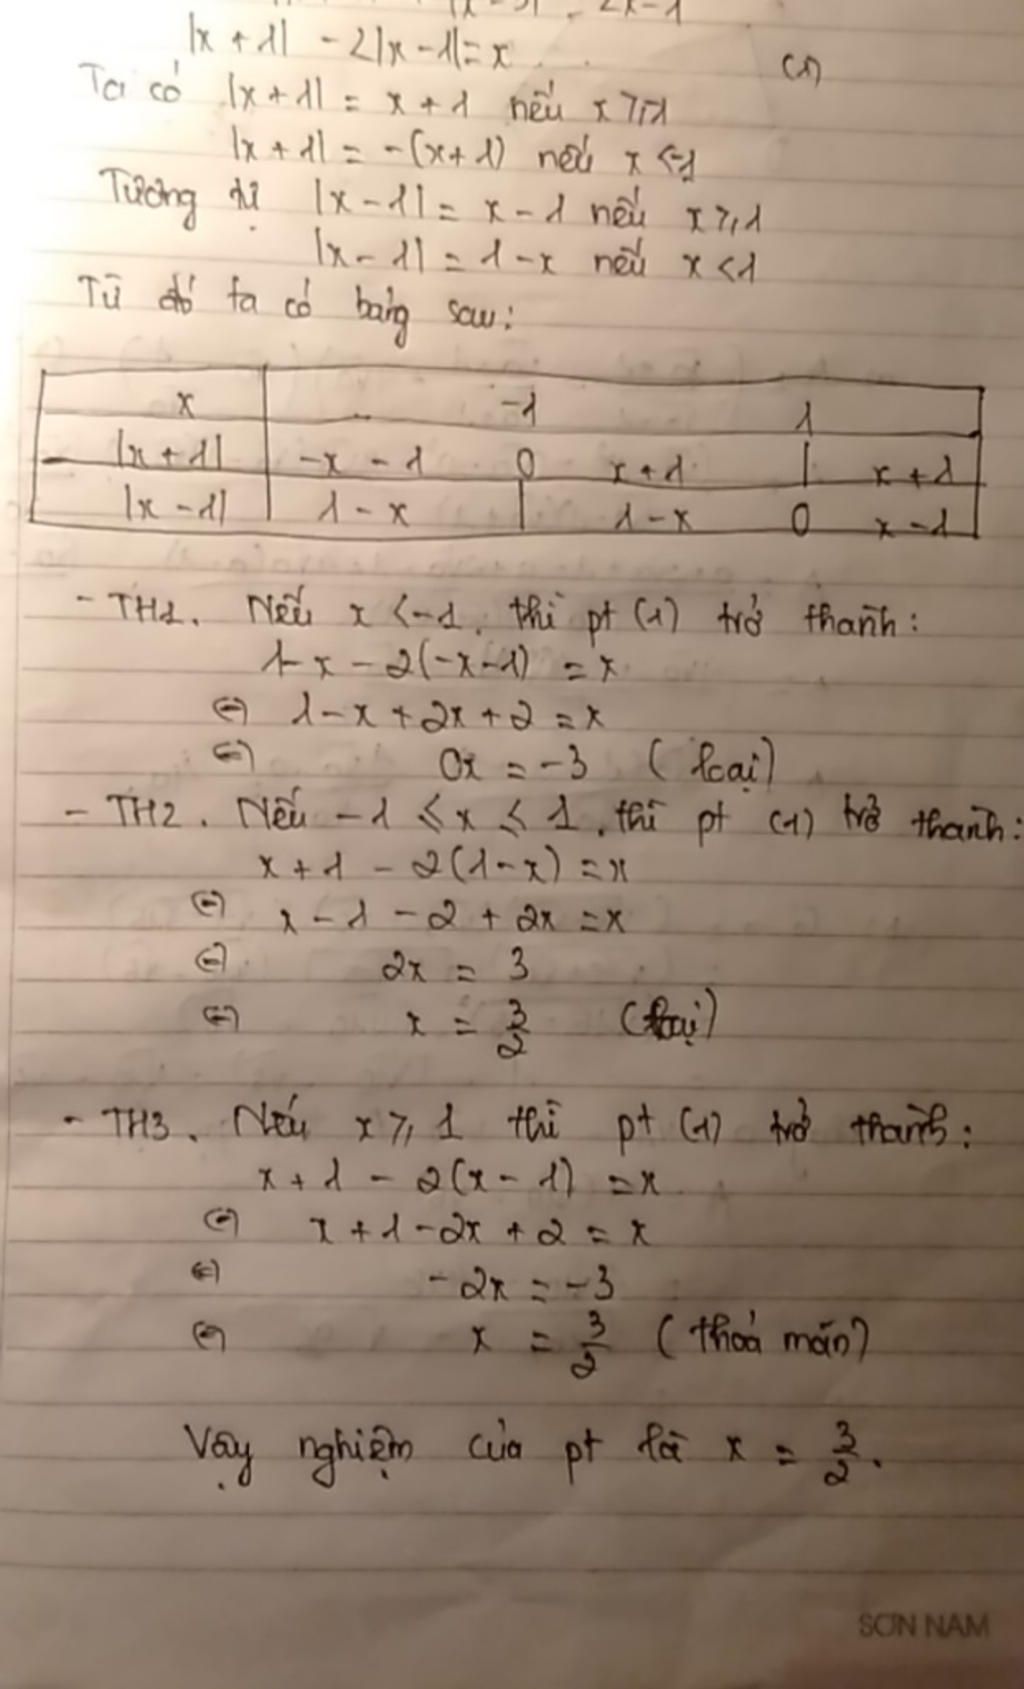 2x-1
|x+1| - 2|x-1| = x (1)
Ta có |x+1| = x+1 nếu x ≥ -1
|x+1| = -(x+1) nếu x < -1
Tương tự |x-1| = x-1 nếu x ≥ 1
|x-1| = 1-x nếu x < 1
Từ đó ta có bảng sau:
x -1 1
|x+1| -x-1 0 x+1 | x+1
|x-1| 1-x | 1-x 0 x-1
- TH1. Nếu x < -1. thì pt (1) trở thành:
1-x-2(-x-1) = x
⇔ 1-x+2x+2 = x
⇔ 0x = -3 (loại)
- TH2. Nếu -1 ≤ x ≤ 1. thì pt (1) trở thành:
x+1 - 2(1-x) = x
⇔ x-1-2+2x = x
⇔ 2x = 3
⇔ x = 3/2 (loại)
- TH3. Nếu x ≥ 1 thì pt (1) trở thành:
x+1 - 2(x-1) = x
⇔ x+1-2x+2 = x
⇔ -2x = -3
⇔ x = 3/2 (thoả mãn)
Vậy nghiệm của pt là x = 3/2.
SƠN NAM